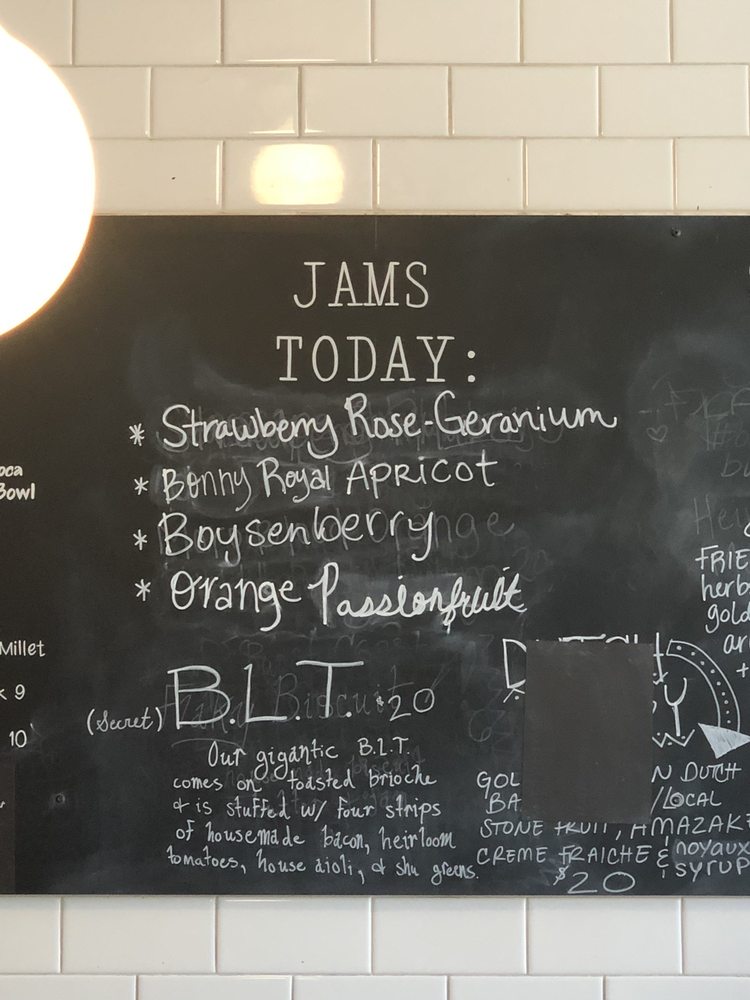 JAMS
TODAY:
* Strawberry Rose-Geranium
* Bonny Royal APRICOT
* Boysenberry
* Orange Passionfruit
oca
Bowl
Millet
9
10
(Secret) B.L.T. $20
Our gigantic B.L.T.
comes on toasted brioche
& is stuffed w/ four strips
of housemade bacon, heirloom
tomatoes, house aioli, & shu greens.
FRIE
herb
gold
ar
+
Y
GOL N DUTCH
BA /LOCAL
STONE FRUIT, AMAZAK
CREME FRAICHE & noyaux
syrup
$20